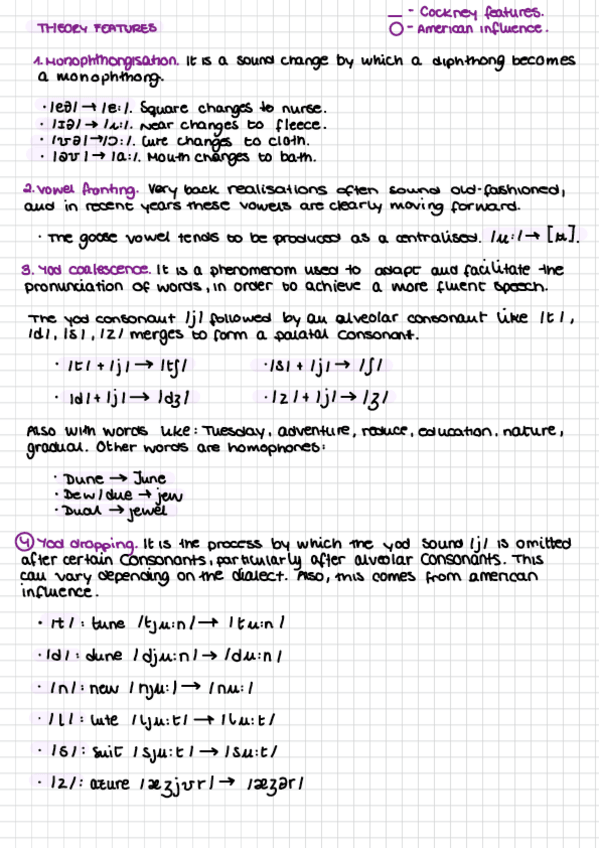 THEORY FEATURES
__ - Cockney features.
O - American influence.
1. Monophthongisation. It is a sound change by which a diphthong becomes
a monophthong.
· /eə/ → /ɐː/. Square changes to nurse.
· /ɪə/ → /iː/. Near changes to fleece.
· /ʊə/ → /ɔː/. Cure changes to cloth.
· /əʊ/ → /aː/. Mouth changes to bath.
2. Vowel fronting. Very back realisations often sound old-fashioned,
and in recent years these vowels are clearly moving forward.
· The goose vowel tends to be produced as a centralised. /uː/ → [ʉ].
3. Yod coalescence. It is a phenomenom used to adapt and facilitate the
pronunciation of words, in order to achieve a more fluent speech.
The yod consonant /j/ followed by an alveolar consonant like /t/,
/d/, /s/, /z/ merges to form a palatal consonant.
· /t/ + /j/ → /tʃ/ · /s/ + /j/ → /ʃ/
· /d/ + /j/ → /dʒ/ · /z/ + /j/ → /ʒ/
Also with words like: Tuesday, adventure, reduce, education, nature,
gradual. Other words are homophones:
· Dune → June
· Dew/due → jew
· Dual → jewel
4 Yod dropping. It is the process by which the yod sound /j/ is omitted
after certain consonants, particularly after alveolar consonants. This
can vary depending on the dialect. Also, this comes from american
influence.
· /t/: tune /tjuːn/ → /tuːn/
· /d/: dune /djuːn/ → /duːn/
· /n/: new /njuː/ → /nuː/
· /l/: lute /ljuːt/ → /luːt/
· /s/: suit /sjuːt/ → /suːt/
· /z/: azure /æʒjʊr/ → /æʒər/